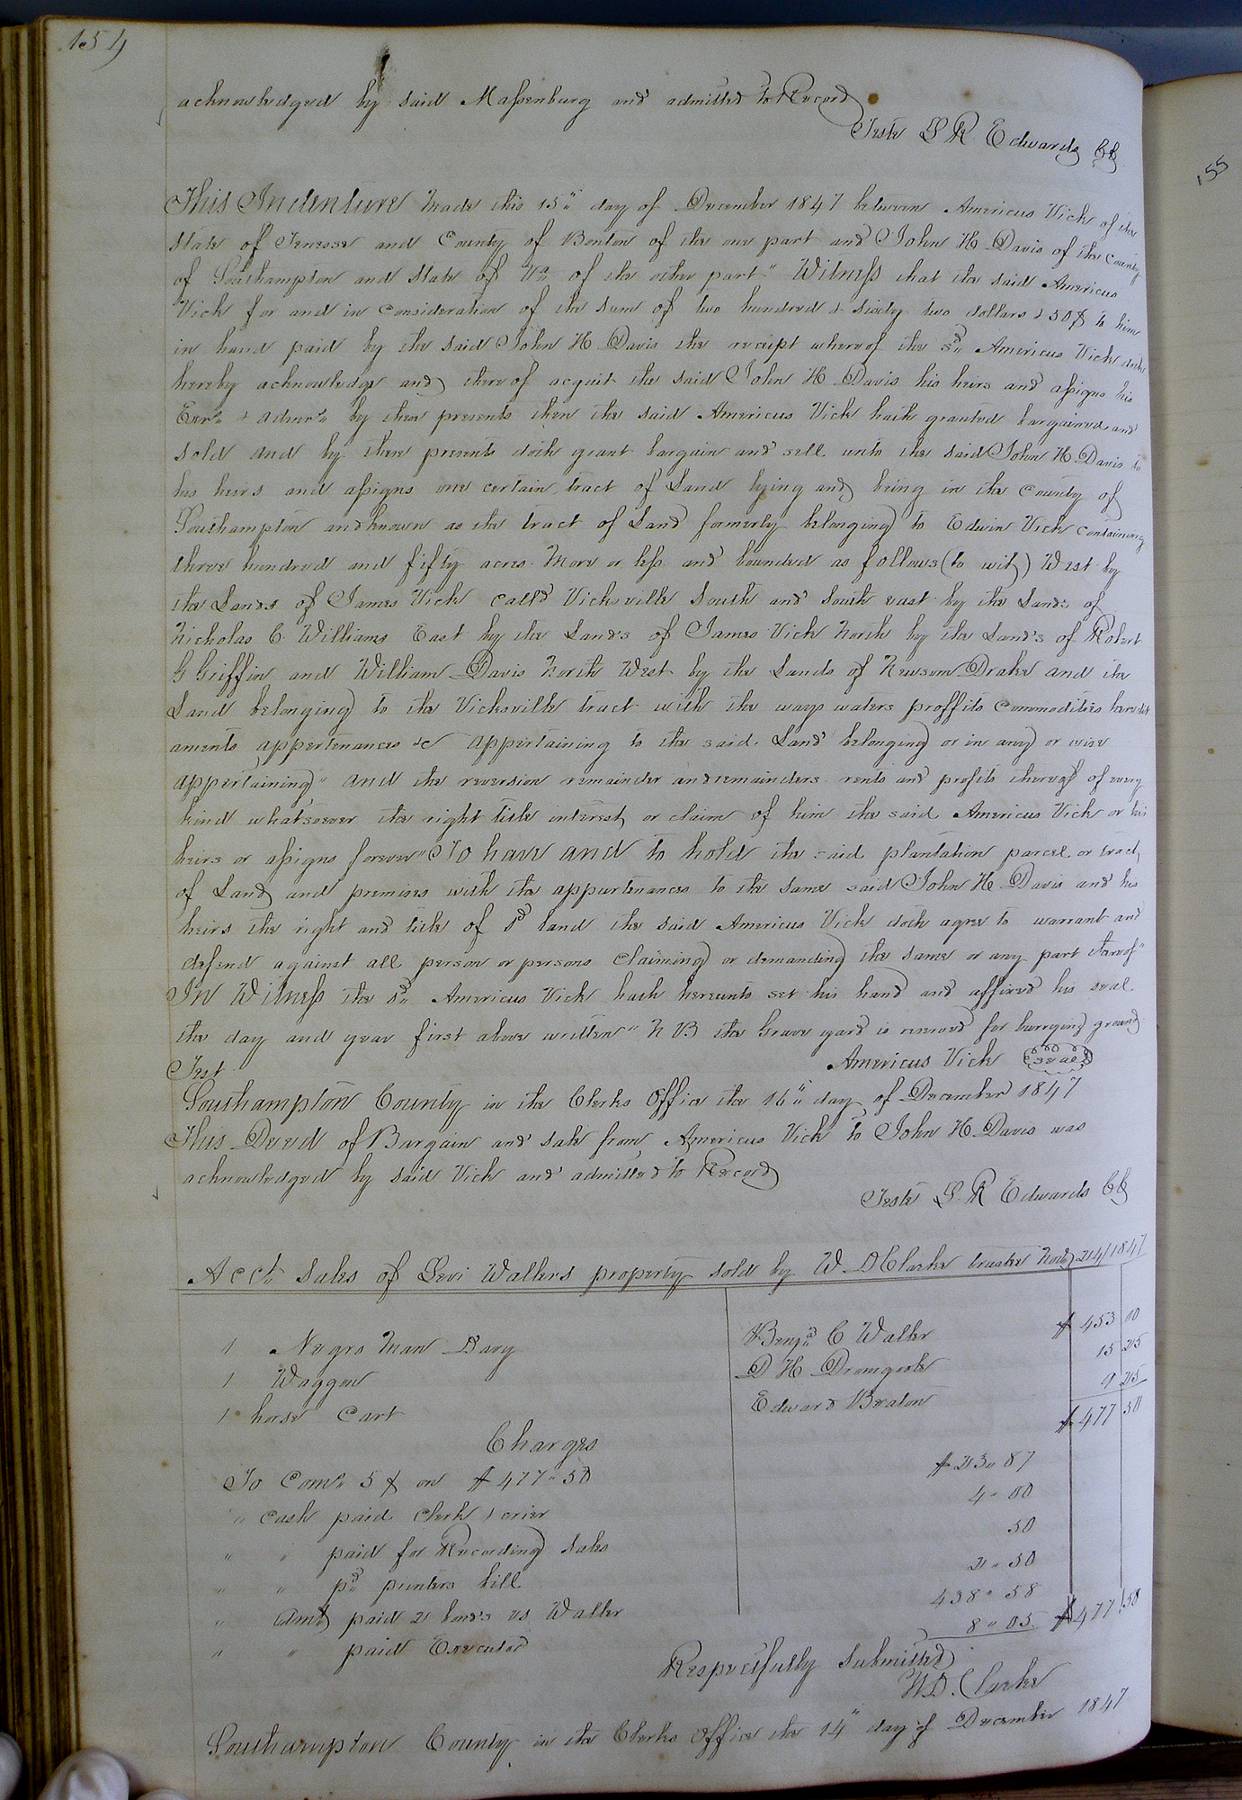 154
acknowledged by said Massenburg and admitted to Record
Teste L R Edwards CC
This Indenture Made this 15" day of December 1847 between Americus Vick of the
State of Tenessee and County of Benton of the one part and John H Davis of the County
of Southampton and State of Va of the other part" Witness that the said Americus
Vick for and in consideration of the sum of two hundred & sixty two dollars & 50¢ to him
in hand paid by the said John H Davis the receipt whereof the sd Americus Vick doth
hereby acknowledge and thereof acquit the said John H Davis his heirs and assigns his
Exrs & admrs by these presents then the said Americus Vick hath granted bargained and
sold and by these presents doth grant bargain and sell unto the said John H Davis to
his heirs and assigns one certain tract of Land lying and being in the County of
Southampton and known as the tract of Land formerly belonging to Edwin Vick containing
three hundred and fifty acres More or less and bounded as follows (to wit) West by
the Lands of James Vick call'd Vicksville South and South east by the Lands of
Nicholas C Williams East by the Lands of James Vick North by the Lands of Robert
G Griffin and William Davis North West by the Lands of Newsom Drake and the
Land belonging to the Vicksville tract with the ways waters proffits commodities heredit
aments appertenances &c appertaining to the said Land belonging or in any or wise
appertaining" and the reversion remainder and remainders rents and profits thereof of every
kind whatsoever the right title interest or claim of him the said Americus Vick or his
heirs or assigns forever" To have and to hold the said plantation parcel or tract
of Land and premises with the appurtenances to the same said John H Davis and his
heirs the right and title of sd land the said Americus Vick doth agree to warrant and
defend against all person or persons claiming or demanding the same or any part thereof"
In Witness the sd Americus Vick hath hereunto set his hand and affixed his seal
the day and year first above written" N B the Grave yard is reserved for burrying ground
Americus Vick Seal
Test
Southampton County in the Clerks Office the 16" day of December 1847
This Deed of Bargain and sale from Americus Vick to John H Davis was
acknowledged by said Vick and admitted to Record
Teste L. R Edwards CC
Acct Sales of Levi Wallers property sold by W D Clarke trustee Novr 24/1847
1 Negro Man Davy Benjn C Waller $ 453 00
1 Waggon D H Dromgoole 15 25
1 horse Cart Edward Beaton 9 25
$ 477 50
Charges
To Coms 5 % on $ 477"50 $ 23"87
" Cash paid Clerk & crier 4"00
" " paid for Recording Sales 50
" " pd printers bill 2"50
" Amt paid 2 bonds vs Waller 438"58
" " paid Executor 8"05 $477 50
Respectfully Submitted
W.D. Clarke
Southampton County in the Clerks Office the 14" day of December 1847
155